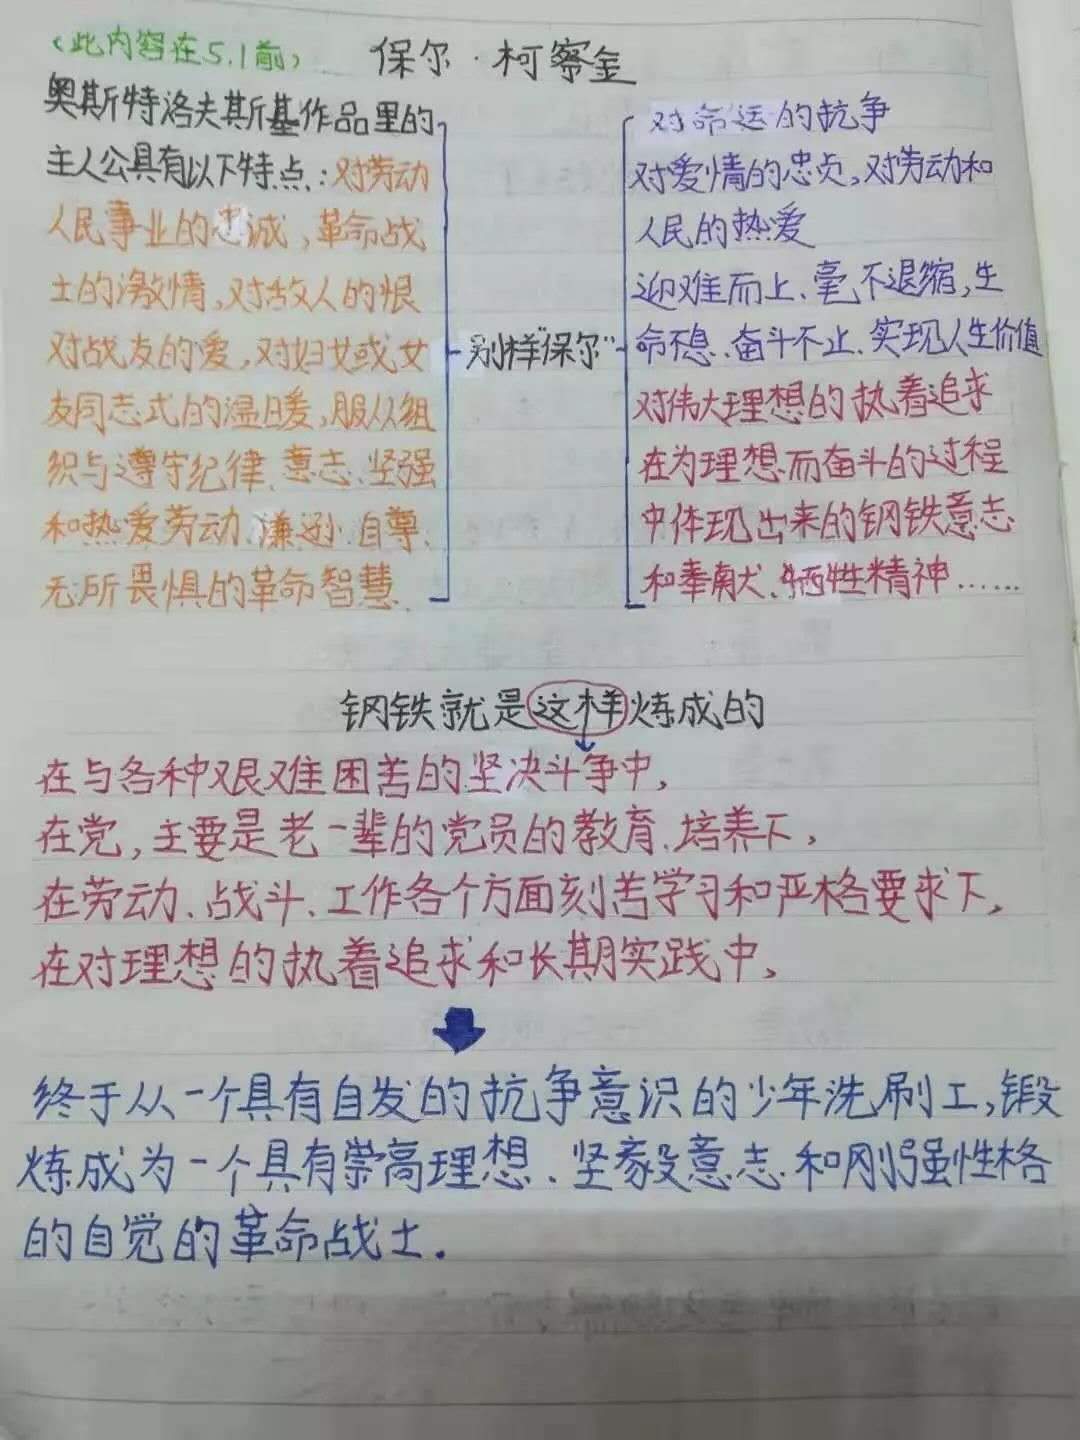 (此内容在5.1前)
保尔·柯察金
奥斯特洛夫斯基作品里的
主人公具有以下特点:对劳动
人民事业的忠诚,革命战
士的激情,对敌人的恨
对战友的爱,对妇女或女
友同志式的温暖,服从组
织与遵守纪律、意志、坚强
和热爱劳动、谦逊、自尊、
无所畏惧的革命智慧、
别样"保尔"
对命运的抗争
对爱情的忠贞,对劳动和
人民的热爱
迎难而上、毫不退缩,生
命不息、奋斗不止、实现人生价值
对伟大理想的执着追求
在为理想而奋斗的过程
中体现出来的钢铁意志
和奉献、牺牲精神……
钢铁就是这样炼成的
在与各种艰难困苦的坚决斗争中,
在党,主要是老一辈的党员的教育、培养下,
在劳动、战斗、工作各个方面刻苦学习和严格要求下,
在对理想的执着追求和长期实践中,
终于从一个具有自发的抗争意识的少年洗刷工,锻
炼成为一个具有崇高理想、坚毅意志和刚强性格
的自觉的革命战士.